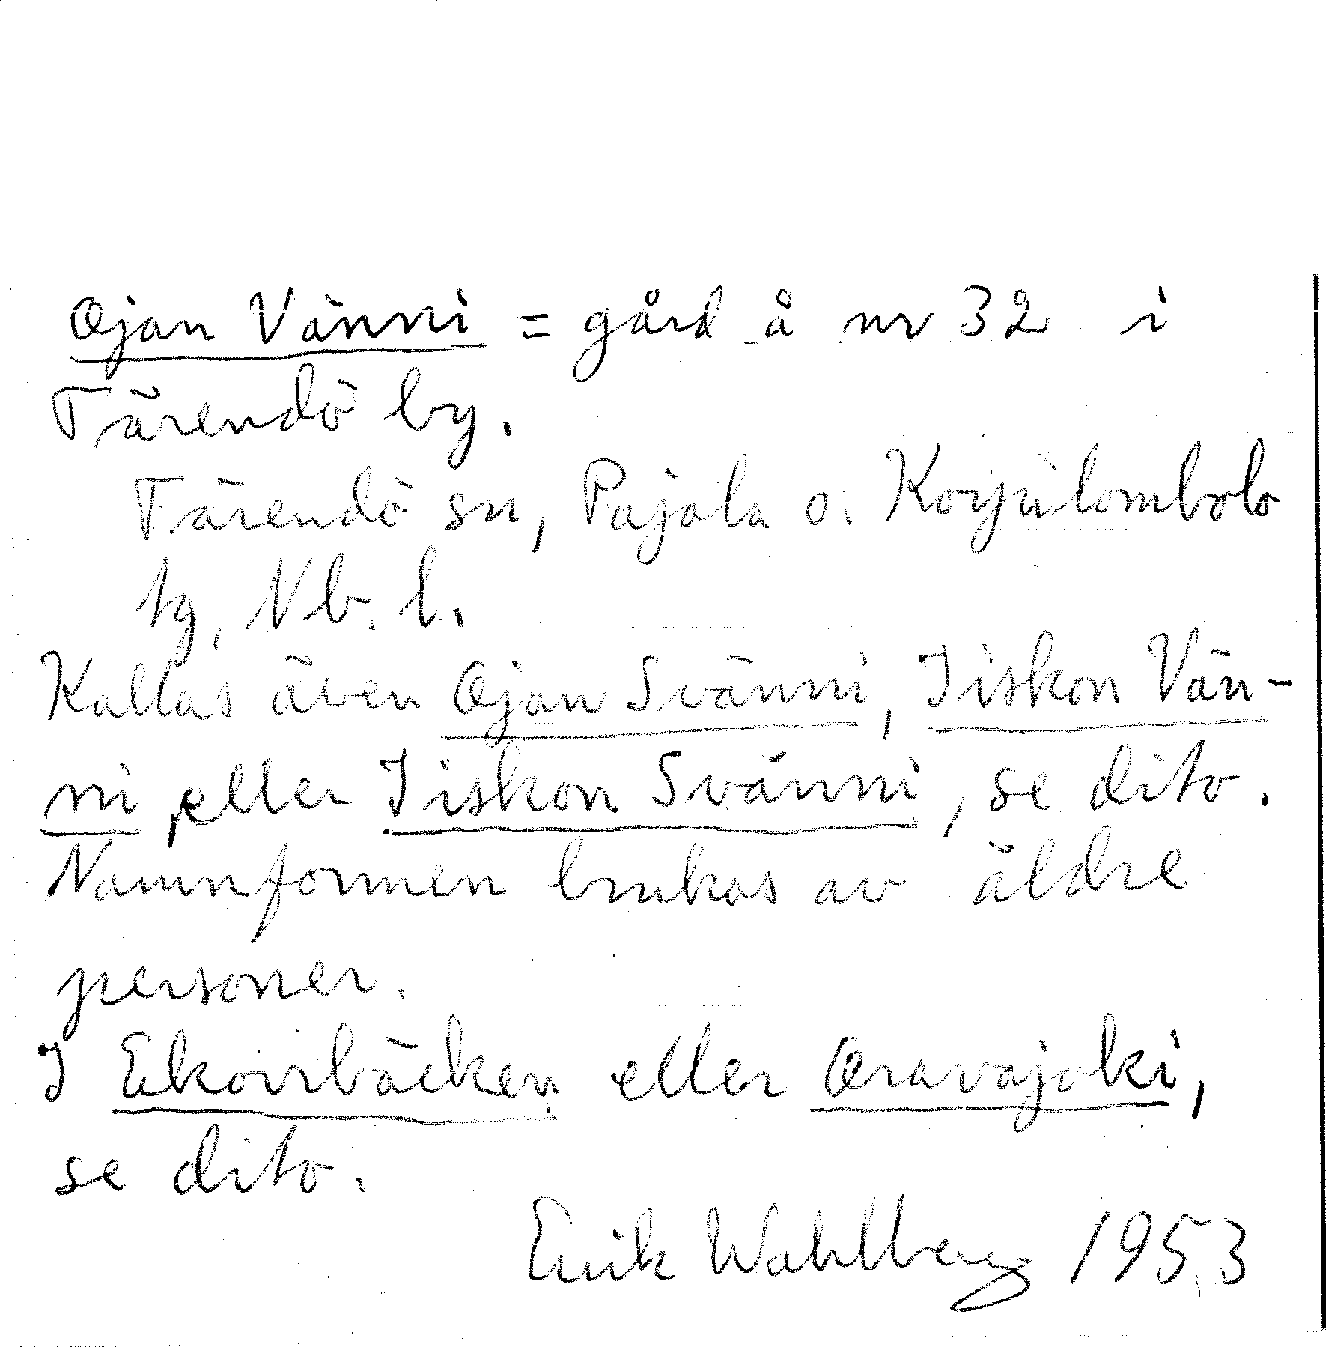 Ojan Vänni = gård å nr 32 i
Tärendö by.
Tärendö sn, Pajala o. Korpilombolo
tg, Nb. l.
Kallas även Ojan Svänni, Iiskon Vän-
ni, eller Iiskon Svänni, se dito.
Namnformen brukas av äldre
personer.
I Ekorrbäcken eller Oravajoki,
se dito.
Erik Wahlberg 1953